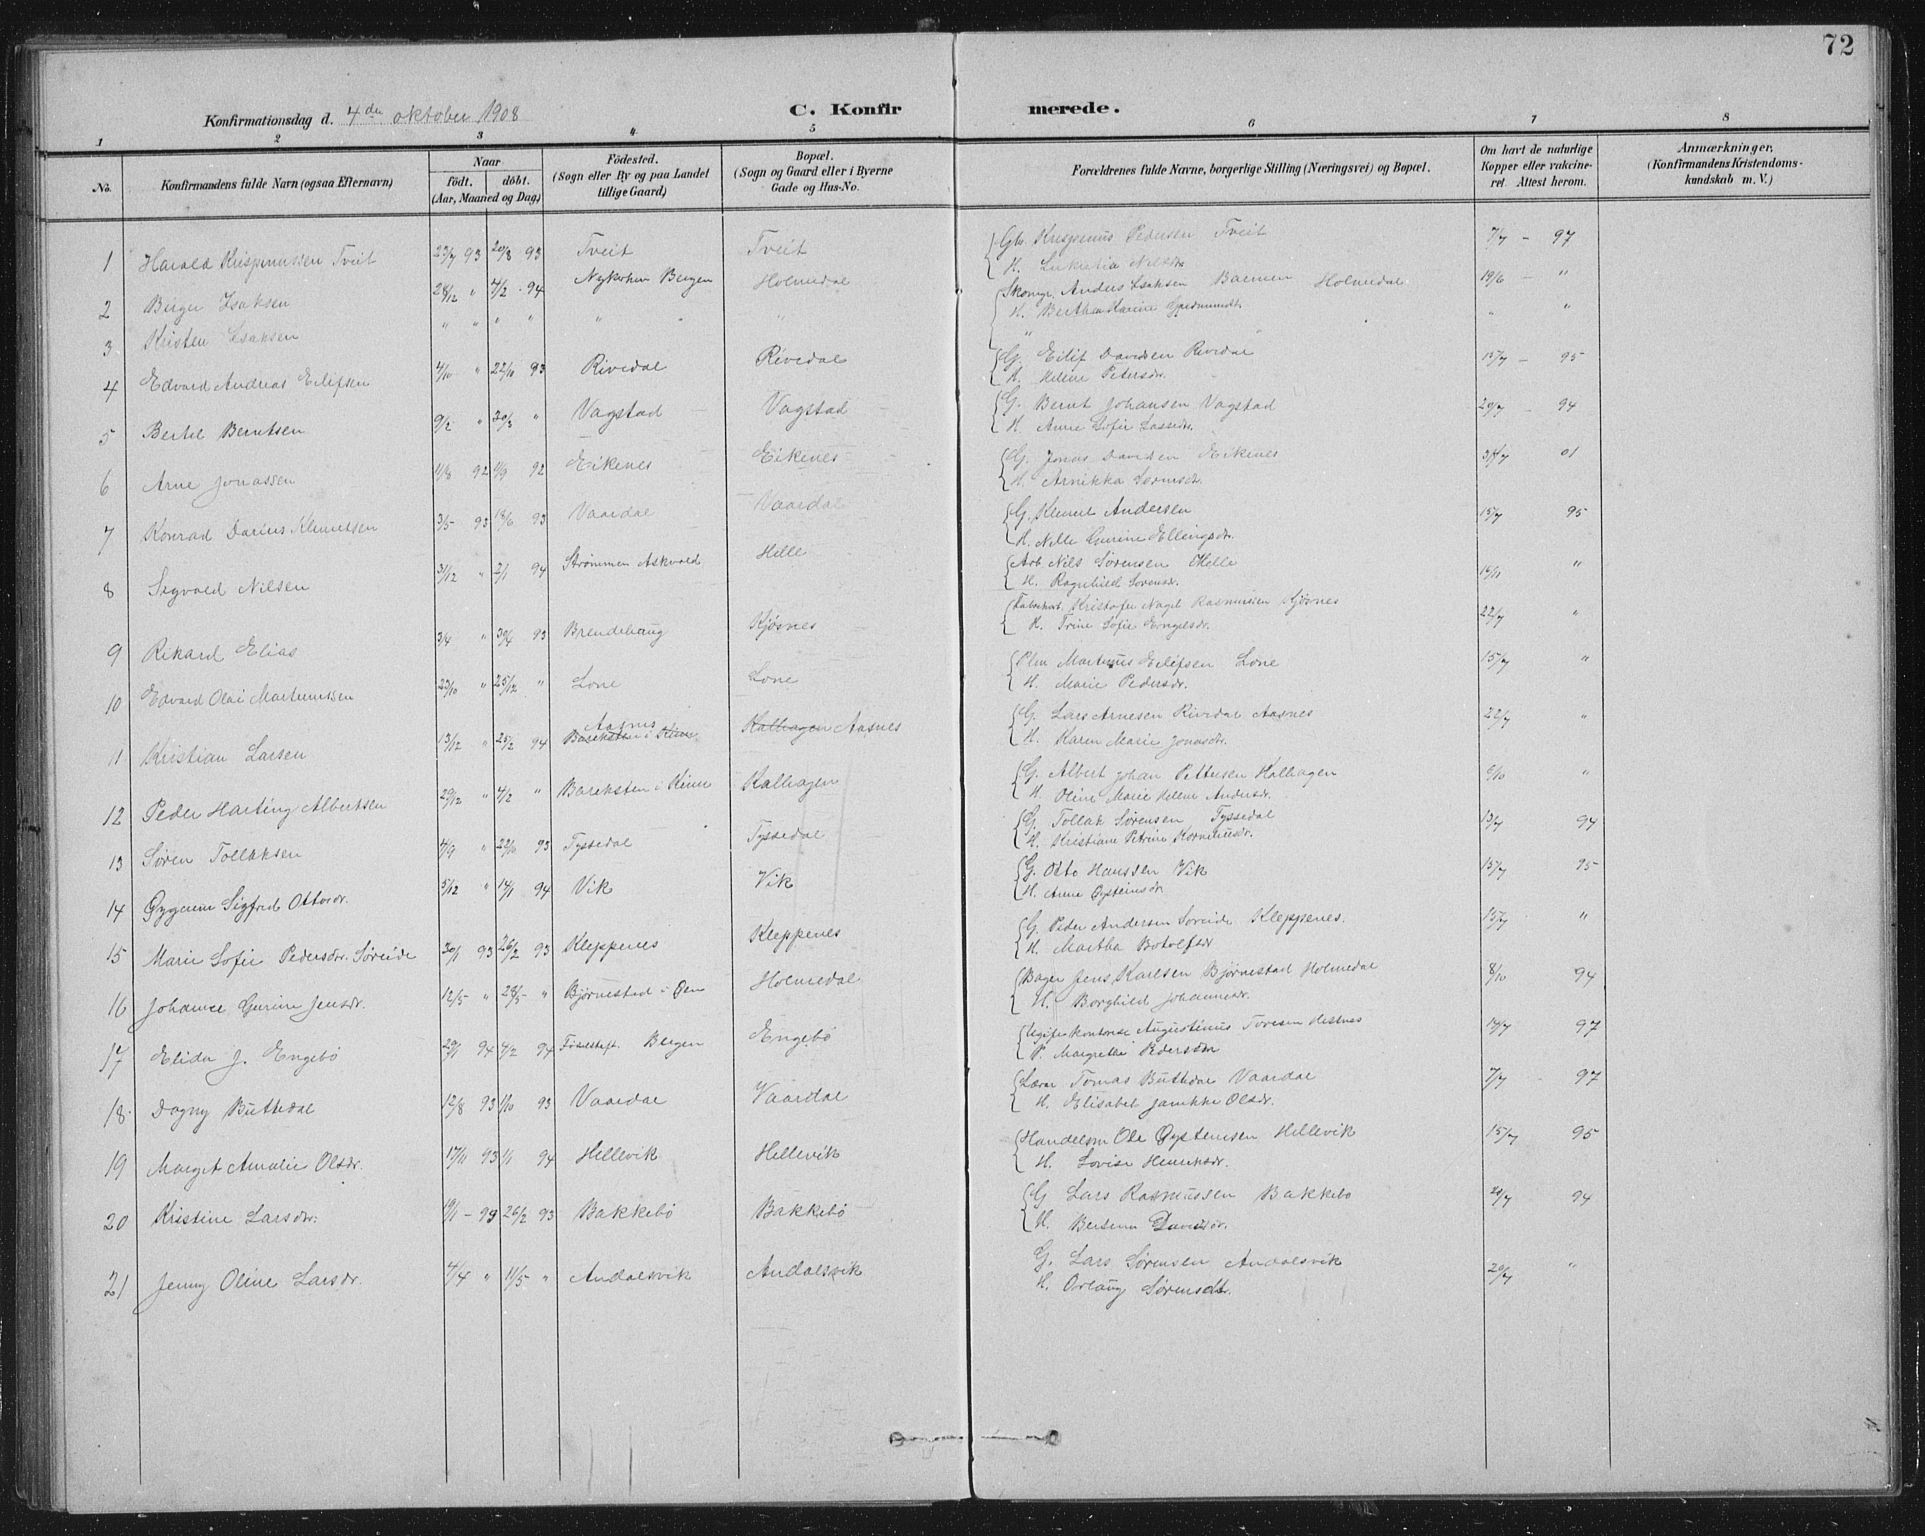 72
Konfirmationsdag d. 4de oktober 1908
C. Konfirmerede.
1 2 3 4 5 6 7 8
No.
Konfirmandens fulde Navn (ogsaa Efternavn)
Naar
födt. döbt.
(Aar, Maaned og Dag)
Födested.
(Sogn eller By og paa Landet
tillige Gaard)
Bopæl.
(Sogn og Gaard eller i Byerne
Gade og Hus-No.
Forældrenes fulde Navne, borgerlige Stilling (Næringsvei) og Bopæl.
Om havt de naturlige
Kopper eller vakcine-
ret. Attest herom.
Anmærkninger,
(Konfirmandens Kristendoms-
kundskab m. V.)
1 Harald Krispinussen Tveit 23/7 93 20/8 93 Tveit Tveit Krispinus Pedersen Tveit 7/7 - 97
H. Lukretia Nilsdr.
2 Berger Isaksen 28/12 " 4/2 94 Nykirken Bergen Holmedal Skomgr. Anders Isaksen Holmedal 19/6 - "
H. Berthe Karine
3 Kristen Isaksen " " " " " " " "
4 Edvard Andreas Eilifsen 4/10 " 22/10 93 Rivedal Rivedal G. Eilif Davidsen Rivedal 15/7 - 95
H. Heline Petersdr.
5 Bertel Berntsen 9/2 " 30/3 " Vagstad Vagstad G. Bernt Johansen Vagstad 20/7 - 94
H. Anne Sofie Lassedr.
6 Arne Jonassen 11/8 92 92 Eikenes Eikenes G. Jonas Davidsen Eikenes 01
H. Arnikka
7 Konrad Darius Klemetsen 3/5 93 18/6 93 Vaardal Vaardal G. Klemet Andersen 15/7 95
H. Nille Gurine Ellingsdr.
8 Sigvald Nilsen 31/12 " 2/1 94 Strømmen Askvold Helle Arb. Nils Sørensen Helle "
H. Ragnhild Sørensdr.
9 Rikard Elias 3/4 " 30/4 93 Brendehaug Kjøsnes Kristofer Nagel Rasmussen Kjøsnes 22/7 "
H. Trine Sofie Engelsdr.
10 Edvard Olai Martinussen 22/10 " 25/12 " Lone Lone Plm Martinus Eilifsen Lone 15/7 "
H. Marie Pedersdr.
11 Kristian Larsen 13/12 " 25/2 94 Aasnes Bareksten i Kinn Kalhagen Aasnes G. Lars Arnesen Rivedal Aasnes 22/7 "
H. Karen Marie Jonasdr.
12 Peder Harting Albertsen 29/12 " 4/2 " Bareksten i Kinn Kalhagen G. Albert Johan Pettersen Kalhagen 6/10 "
H. Oline Marie Helene Andersdr.
13 Søren Tollaksen 4/9 " 22/10 93 Tyssedal Tyssedal G. Tollak Sørensen Tyssedal 13/7 94
H. Kristiane Petrine Korneliusdr.
14 Sigfrid Ottosdr. 5/12 " 14/1 94 Vik Vik G. Otto Hanssen Vik 15/7 95
H. Anne Øysteinsdr.
15 Marie Sofie Pedersdr. Søreide 30/1 93 26/2 93 Kleppenes Kleppenes G. Peder Andersen Søreide Kleppenes. 15/7 "
H. Martha Botolfsdr
16 Johanne Gurine Jensdr. 12/5 " 28/5 " Bjørnestad i Øen Holmedal Bager Jens Karlsen Bjørnestad Holmedal 8/10 94
H. Borghild Johannesdr.
17 Elida J. Engebø 29/1 94 4/2 94 Fødselsst. Bergen Engebø Ugifte Kontorist Augustinus Toresen Hestnes 97
P. Margrethe Pedersdtr
18. Dagny Buttedal 12/8 93 1/10 93 Vaardal Vaardal Lærer Tomas Buttedal Vaardal 7/7 97
H. Elisabet Jamikke Olsdr.
19 Marget Amalie Olsdr. 17/11 93 1/1 94 Hellevik Hellevik Handelsm. Ole Øystensen Hellevik 15/7 95
H. Lovise Henriksdr.
20 Kristine Larsdr. 19/1 - 93 26/2 93 Bakkebö Bakkebö G. Lars Rasmussen Bakkebö 20/7 94
H. Davidsdr.
21 Jenny Oline Larsdr. 4/4 " 11/5 " Andalsvik Andalsvik G. Lars Sørensen Andalsvik 20/7 "
H. Orlaug Sørensdt.